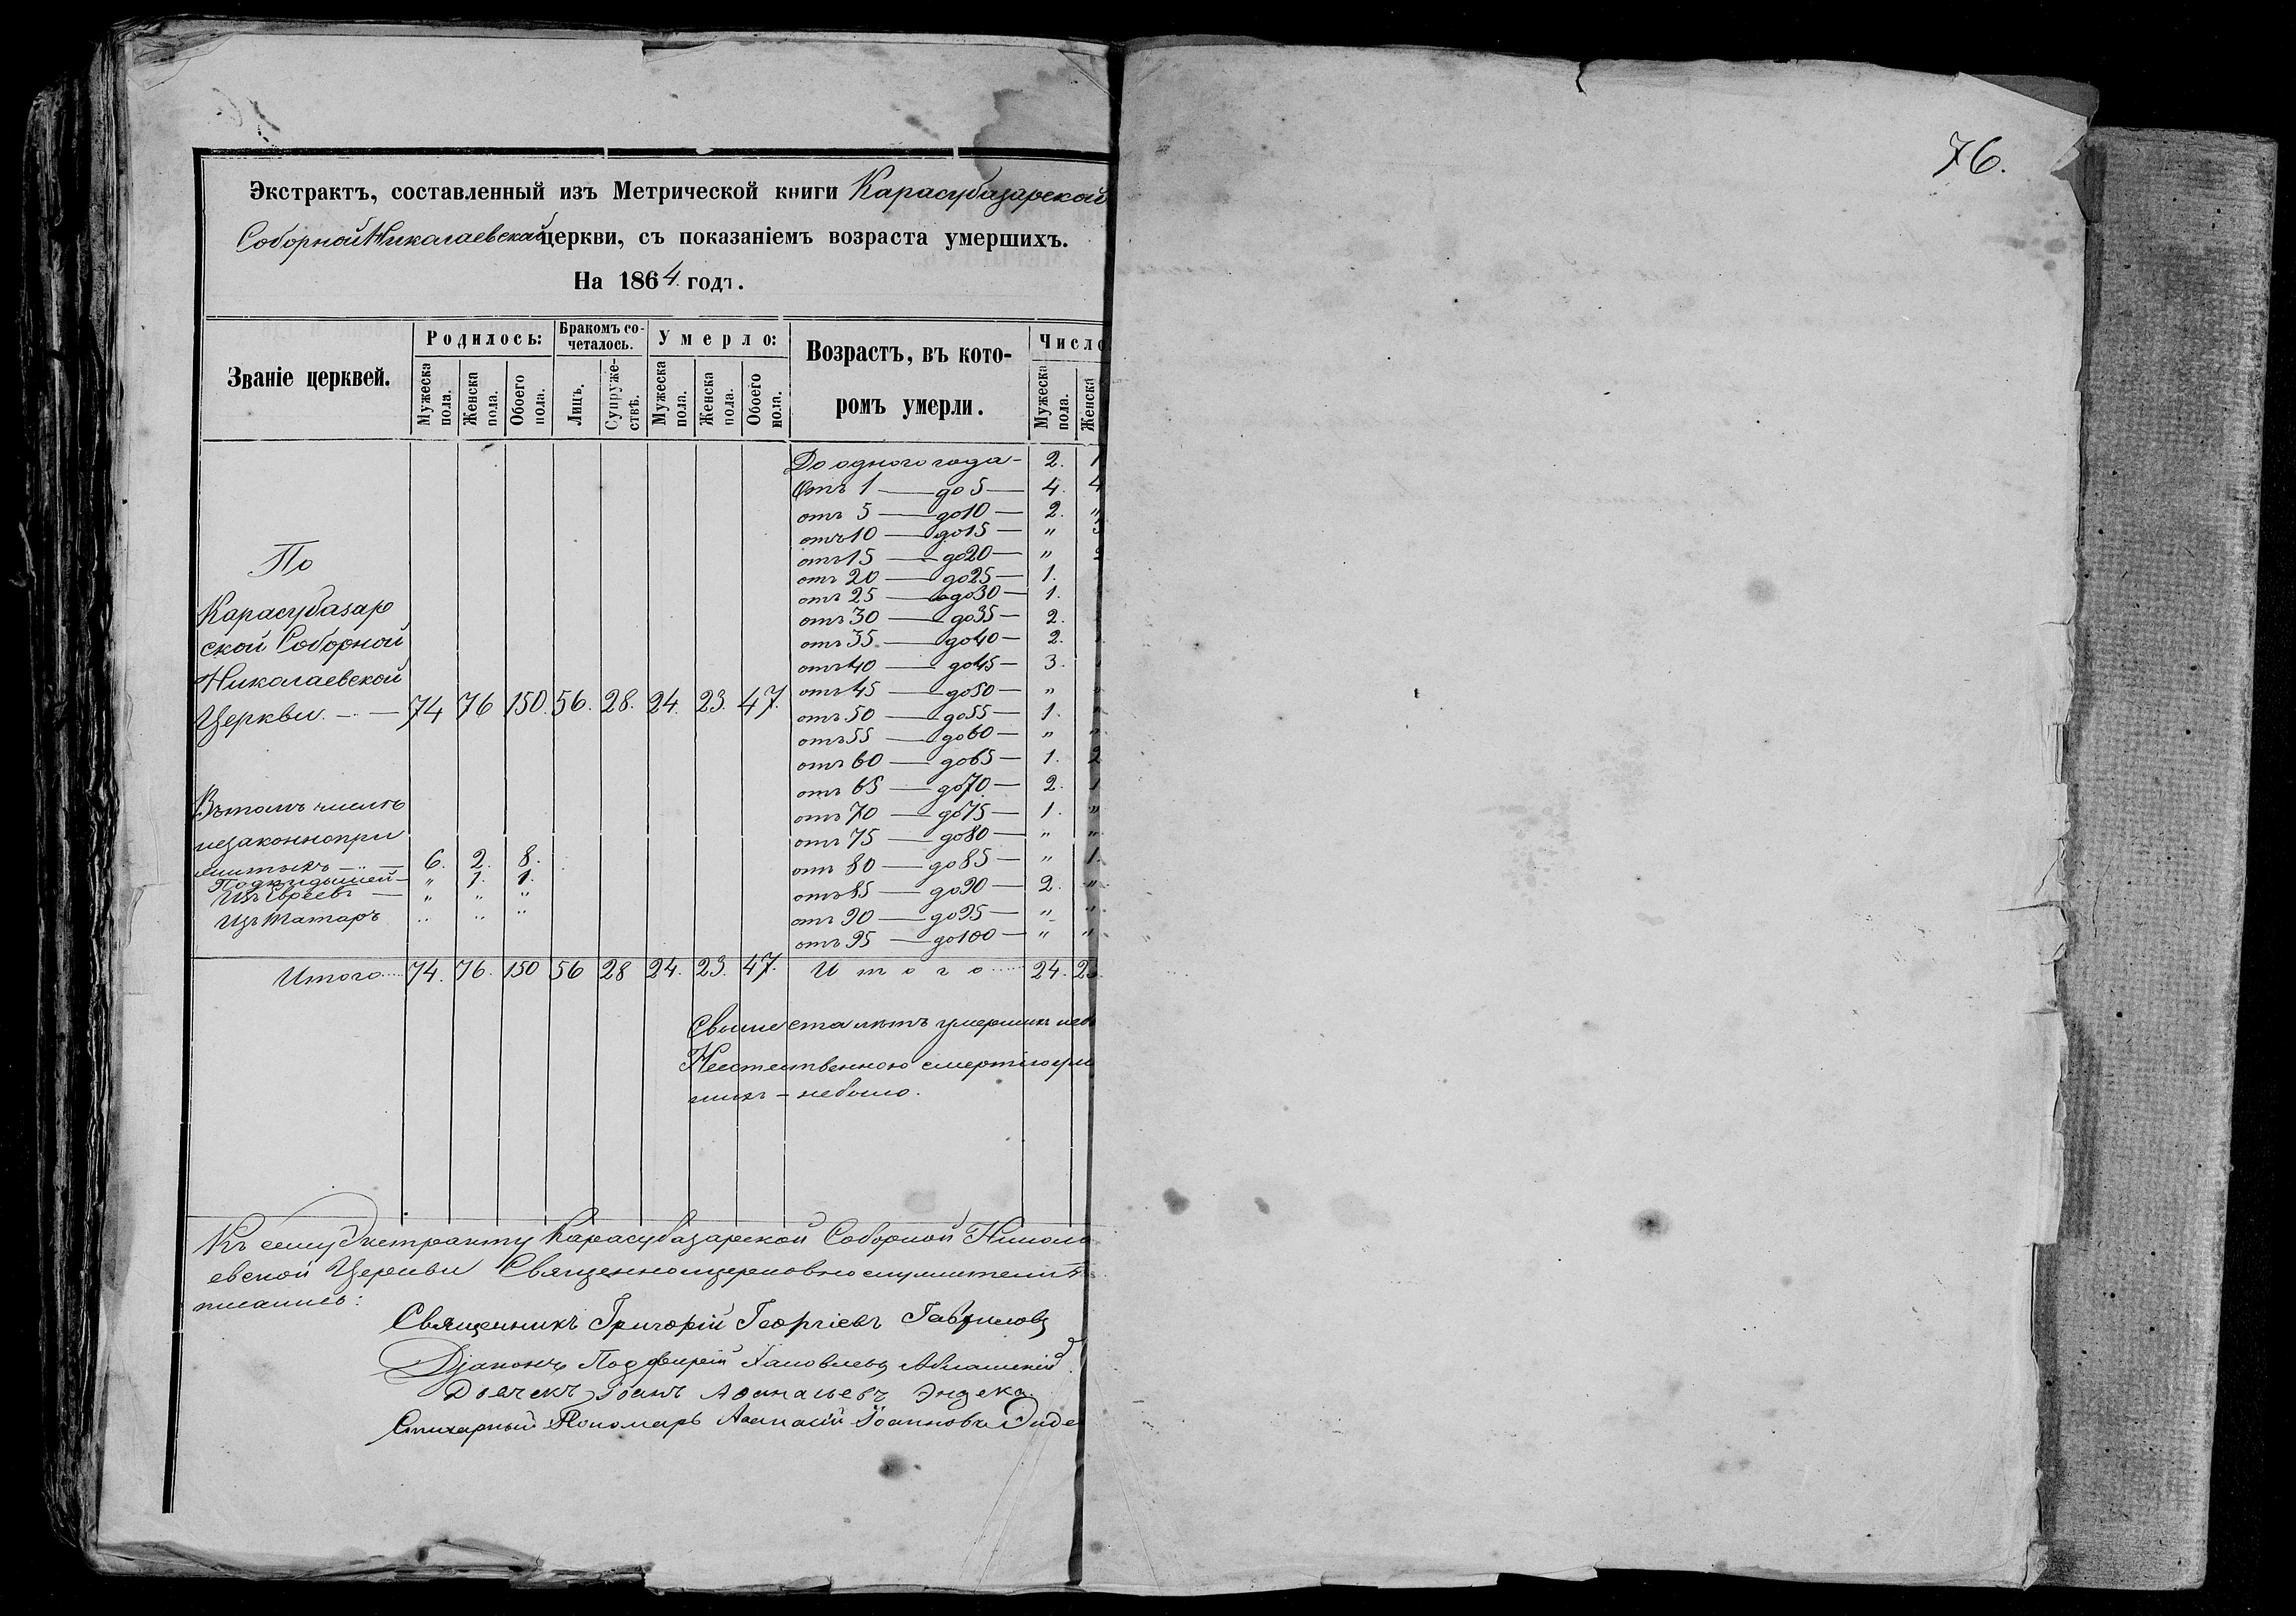 76.
Экстрактъ, составленный изъ Метрической книги Карасубазарской
Соборной Николаевской церкви, съ показаніемъ возраста умершихъ.
На 1864 годъ.
Званіе церквей.
Родилось:
Бракомъ со-
четалось.
Умерло:
Возрастъ, въ кото-
ромъ умерли.
Число
Мужеска пола.
Женска пола.
Обоего пола.
Лицъ.
Супруже-
ствъ.
Мужеска пола.
Женска пола.
Обоего пола.
Мужеска пола.
Женска
До одного года - 2. 1
Отъ 1 — до 5 — 4. 4
отъ 5 — до 10 — 2. "
отъ 10 — до 15 — "
отъ 15 — до 20 — "
отъ 20 — до 25 — 1.
отъ 25 — до 30 — 1.
отъ 30 — до 35 — 2.
отъ 35 — до 40 — 2.
отъ 40 — до 45 — 3.
отъ 45 — до 50 — " "
отъ 50 — до 55 — 1. "
отъ 55 — до 60 — " "
отъ 60 — до 65 — 1. 2
отъ 65 — до 70 — 2. 1
отъ 70 — до 75 — 1. "
отъ 75 — до 80 — " "
отъ 80 — до 85 — " 1.
отъ 85 — до 90 — 2. "
отъ 90 — до 95 — " "
отъ 95 — до 100 — " "
По
Карасубазар
ской Соборной
Николаевской
Церкви. — 74 76 150. 56. 28. 24. 23. 47.
Въ томъ числѣ
незаконнопри
житыхъ — 6. 2. 8.
Подкидышей — " 1. 1.
Изъ Евреевъ — " " "
Изъ Татаръ " " "
Итого 74. 76. 150 56 28 24. 23. 47. Итого 24. 23.
Свыше ста лѣтъ умершихъ неб
Неестественною смертію уме
шихъ – небыло.
Къ сему Экстракту Карасубазарской Соборной Никола
евской Церкви Священноцерковнослужители
писались:
Священникъ Григорій Георгіевъ Гавриловъ
Діаконъ
Дьячекъ Іоанъ Афанасьевъ Эндека.
Стихарный Пономарь Афанасій Іоанновъ Энде